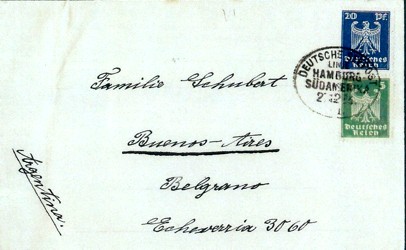 20 Pf.
Deutsches
Reich
DEUTSCHE
LINIE
HAMBURG
SÜDAMERIKA
5
Deutsches
Reich
Familie Schubert
Buenos-Aires
Belgrano
Echeverria 3060
Argentina.